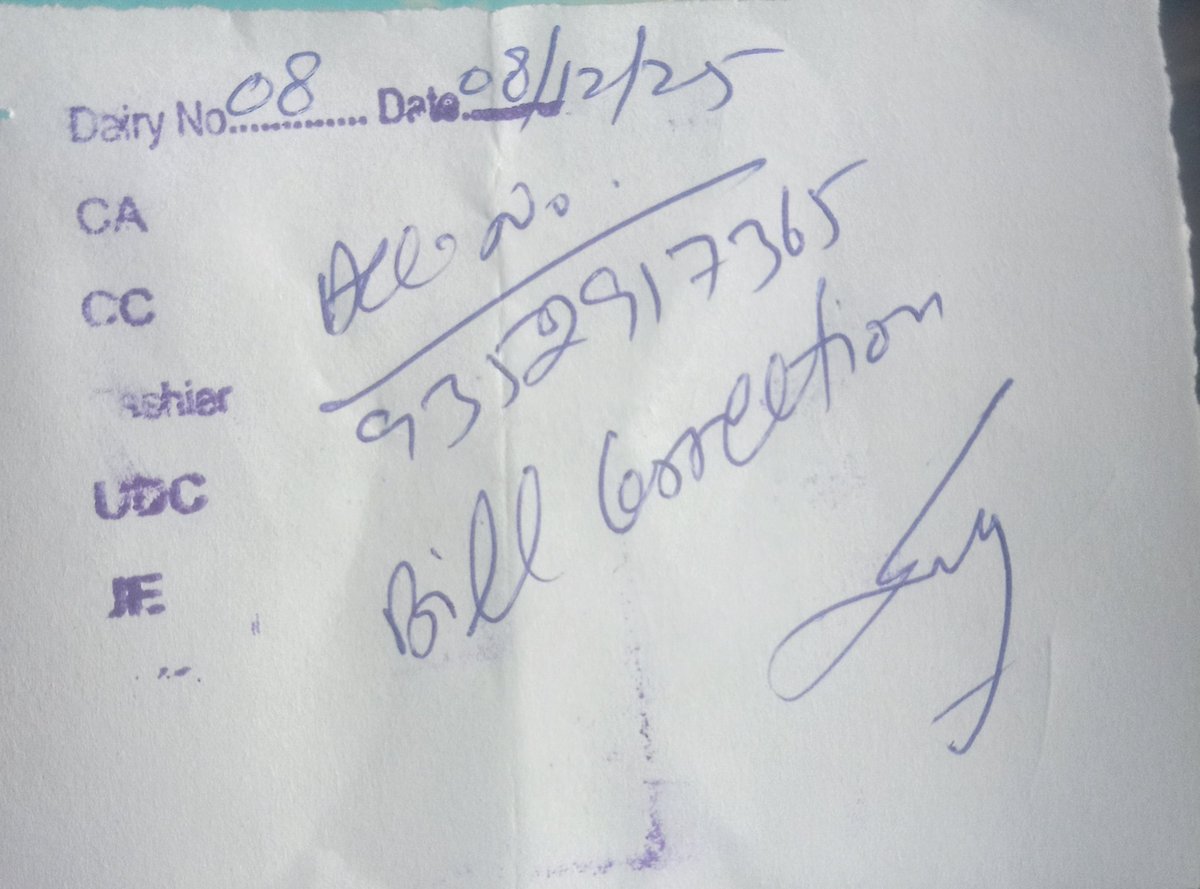 Dairy No 08 Date 08/12/25
CA
Acc No.
CC
9352917365
Cashier
Bill Correction
UDC
JE